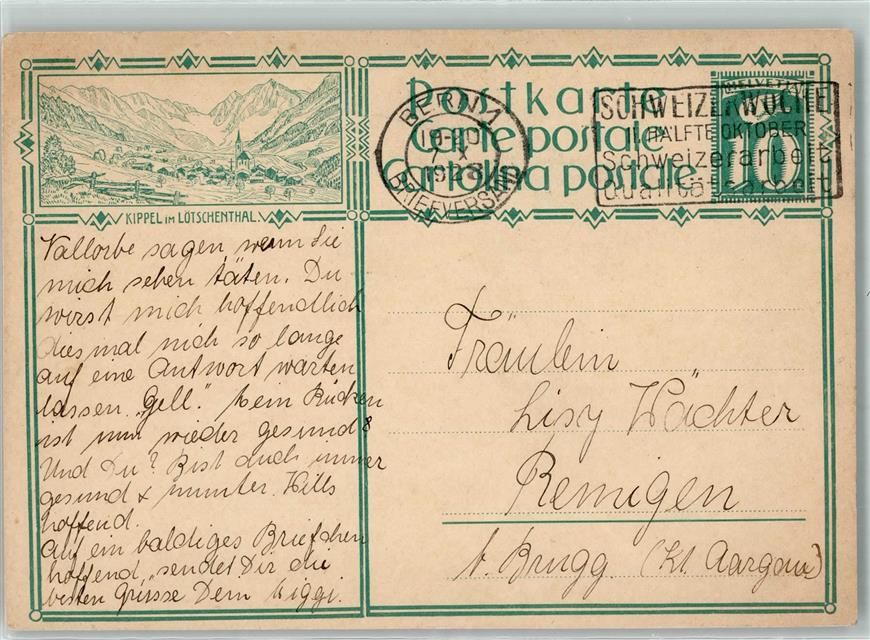 Postkarte
Carte postale
Cartolina postale
HELVETIA
10
BERN 1
1928
BRIEFVERSAND
SCHWEIZERWOCHE
II. HÄLFTE OKTOBER
Schweizerarbeit
Qualitätsarbeit
KIPPEL IM LÖTSCHENTHAL
Vallorbe sagen, wenn Sie
mich sehen täten. Du
wirst mich hoffendlich
diesmal nich so lange
auf eine Antwort warten
lassen. „Gell". Mein Rücken
ist nun wieder gesund
Und Du? Bist duch immer
gesund & munter. Wills
hoffend.
Auf ein baldiges Briefchen
hoffend, sendet Dir die
besten Grüsse Dein Wiggi.
Fräulein
Lisy Wächter
Remigen
b. Brugg (Kt. Aargau)